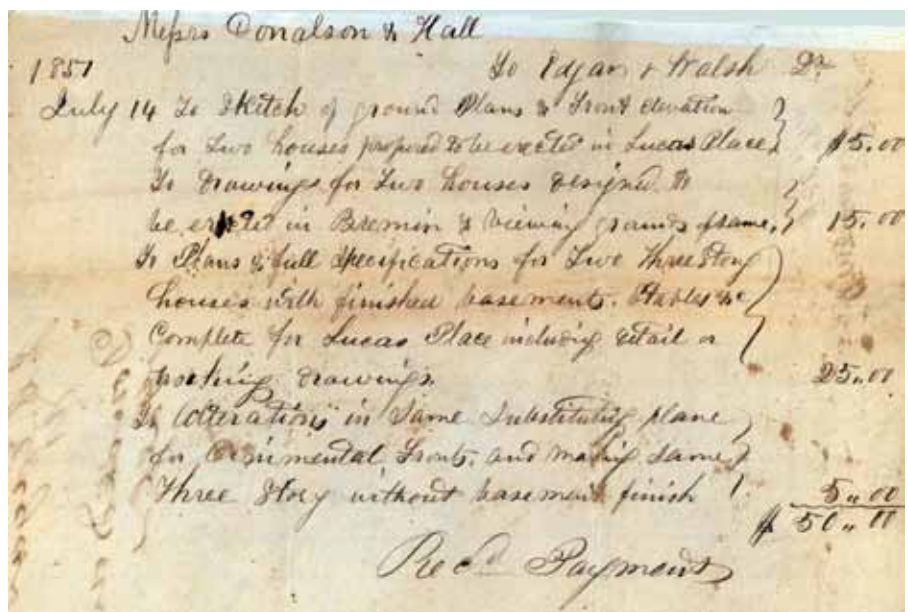 Messrs Donalson & Hall
1851 To Edgar & Walsh Dr
July 14 To Sketch of ground Plans & Front elevation
for Two houses propoed to be erected in Lucas Place $5.00
To Drawings for Two houses designed to
be erected in Bremin & viewing grounds same, 15.00
To Plans & full Specifications for Two Three Story
houses with finished basements. Stables &c
Complete for Lucas Place including detail or
working drawings. 25.00
To Alterations in Same Substituting plane
for Orinimental Fronts, and making same
Three Story without basement finish 5.00
$ 50.00
Recd Payment